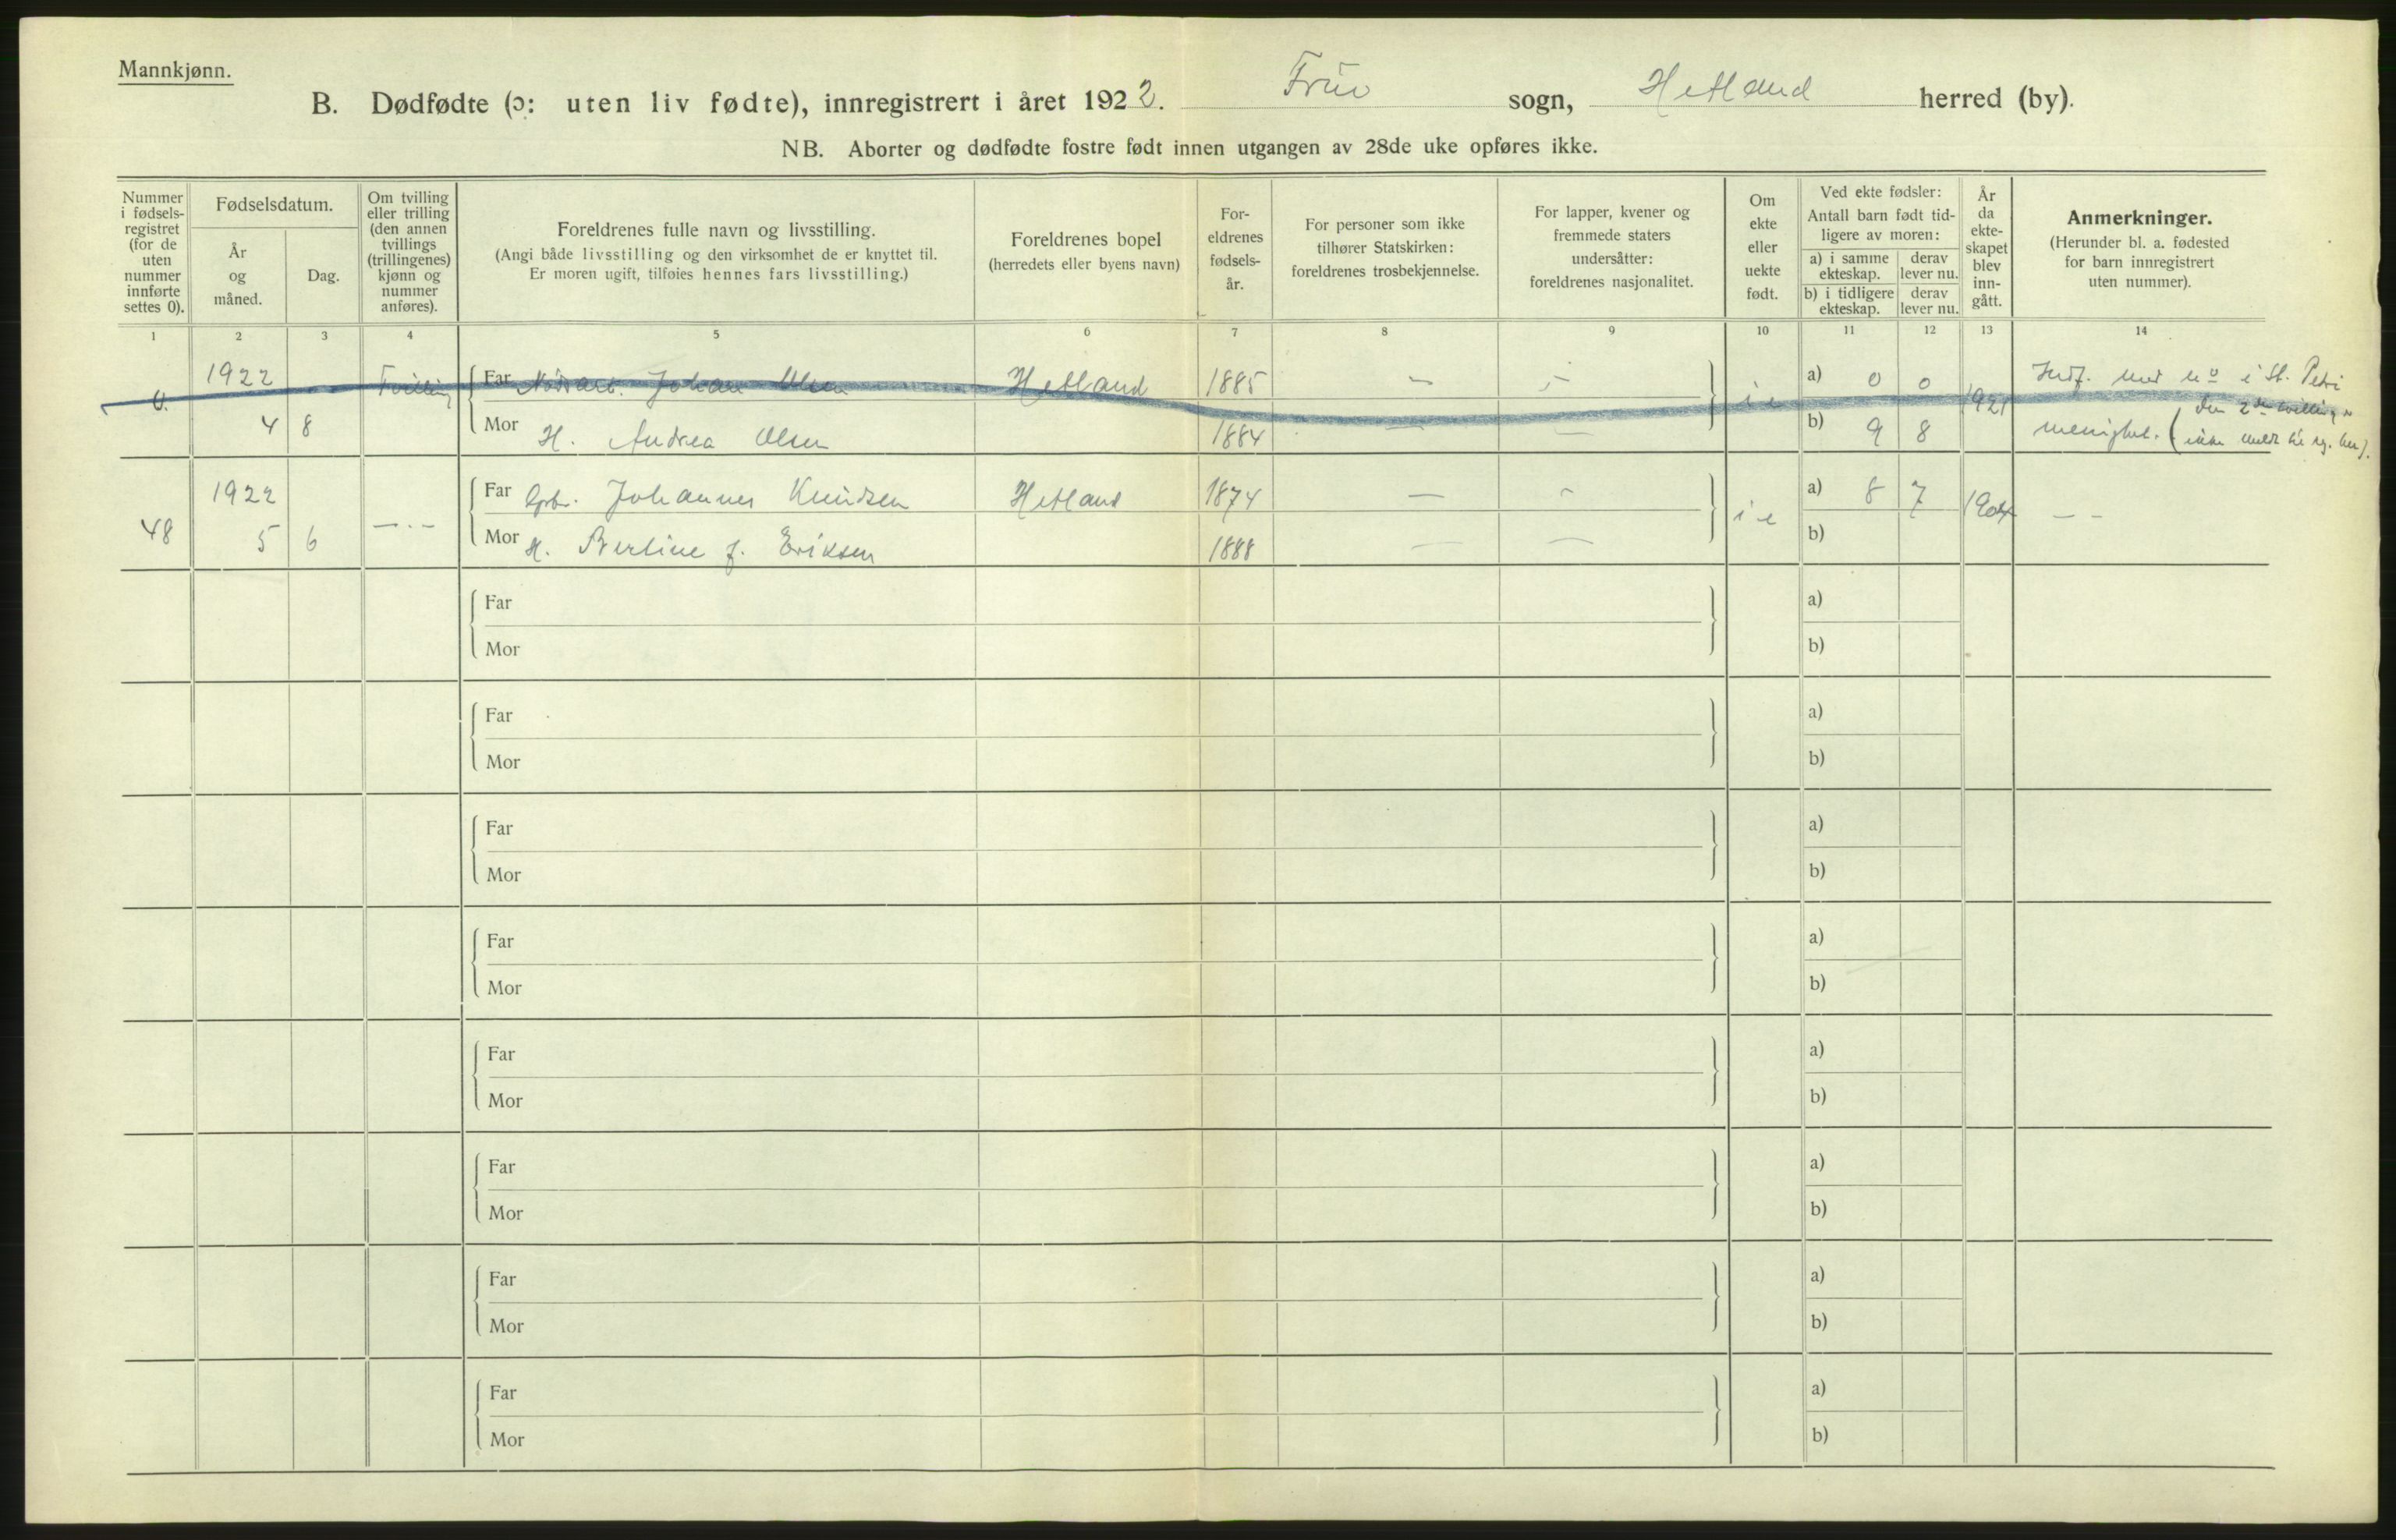 Mannkjønn.
B. Dødfødte (ɔ: uten liv fødte), innregistrert i året 1922. Frue sogn, Hetland herred (by).
NB. Aborter og dødfødte fostre født innen utgangen av 28de uke opføres ikke.
Nummer
i fødsels-
registret
(for de
uten
nummer
innførte
settes 0).
Fødselsdatum.
År
og
måned.
Dag.
Om tvilling
eller trilling
(den annen
tvillings
(trillingenes)
kjønn og
nummer
anføres).
Foreldrenes fulle navn og livsstilling.
(Angi både livsstilling og den virksomhet de er knyttet til.
Er moren ugift, tilføies hennes fars livsstilling.)
Foreldrenes bopel
(herredets eller byens navn)
For-
eldrenes
fødsels-
år.
For personer som ikke
tilhører Statskirken:
foreldrenes trosbekjennelse.
For lapper, kvener og
fremmede staters
undersåtter:
foreldrenes nasjonalitet.
Om
ekte
eller
uekte
født.
Ved ekte fødsler:
Antall barn født tid-
ligere av moren:
a) i samme
ekteskap.
derav
lever nu.
b) i tidligere
ekteskap.
derav
lever nu.
År
da
ekte-
skapet
blev
inn-
gått.
Anmerkninger.
(Herunder bl. a. fødested
for barn innregistrert
uten nummer).
1 2 3 4 5 6 7 8 9 10 11 12 13 14
0. 1922 Tvilling Far Johan Olsen Hetland 1885 — — i e a) 0 0 1921 Indf. med No i St. Petri
den 2den tvilling
4 8 Mor H. Andrea Olsen 1884 — — b) 9 8 menighet. (ikke
48 1922 —.— Far Johannes Knudsen Hetland 1874 — — i e a) 8 7 1904 — —
5 6 Mor H. Bertine f. Eriksen 1888 — — b)
Far a)
Mor b)
Far a)
Mor b)
Far a)
Mor b)
Far a)
Mor b)
Far a)
Mor b)
Far a)
Mor b)
Far a)
Mor b)
Far a)
Mor b)